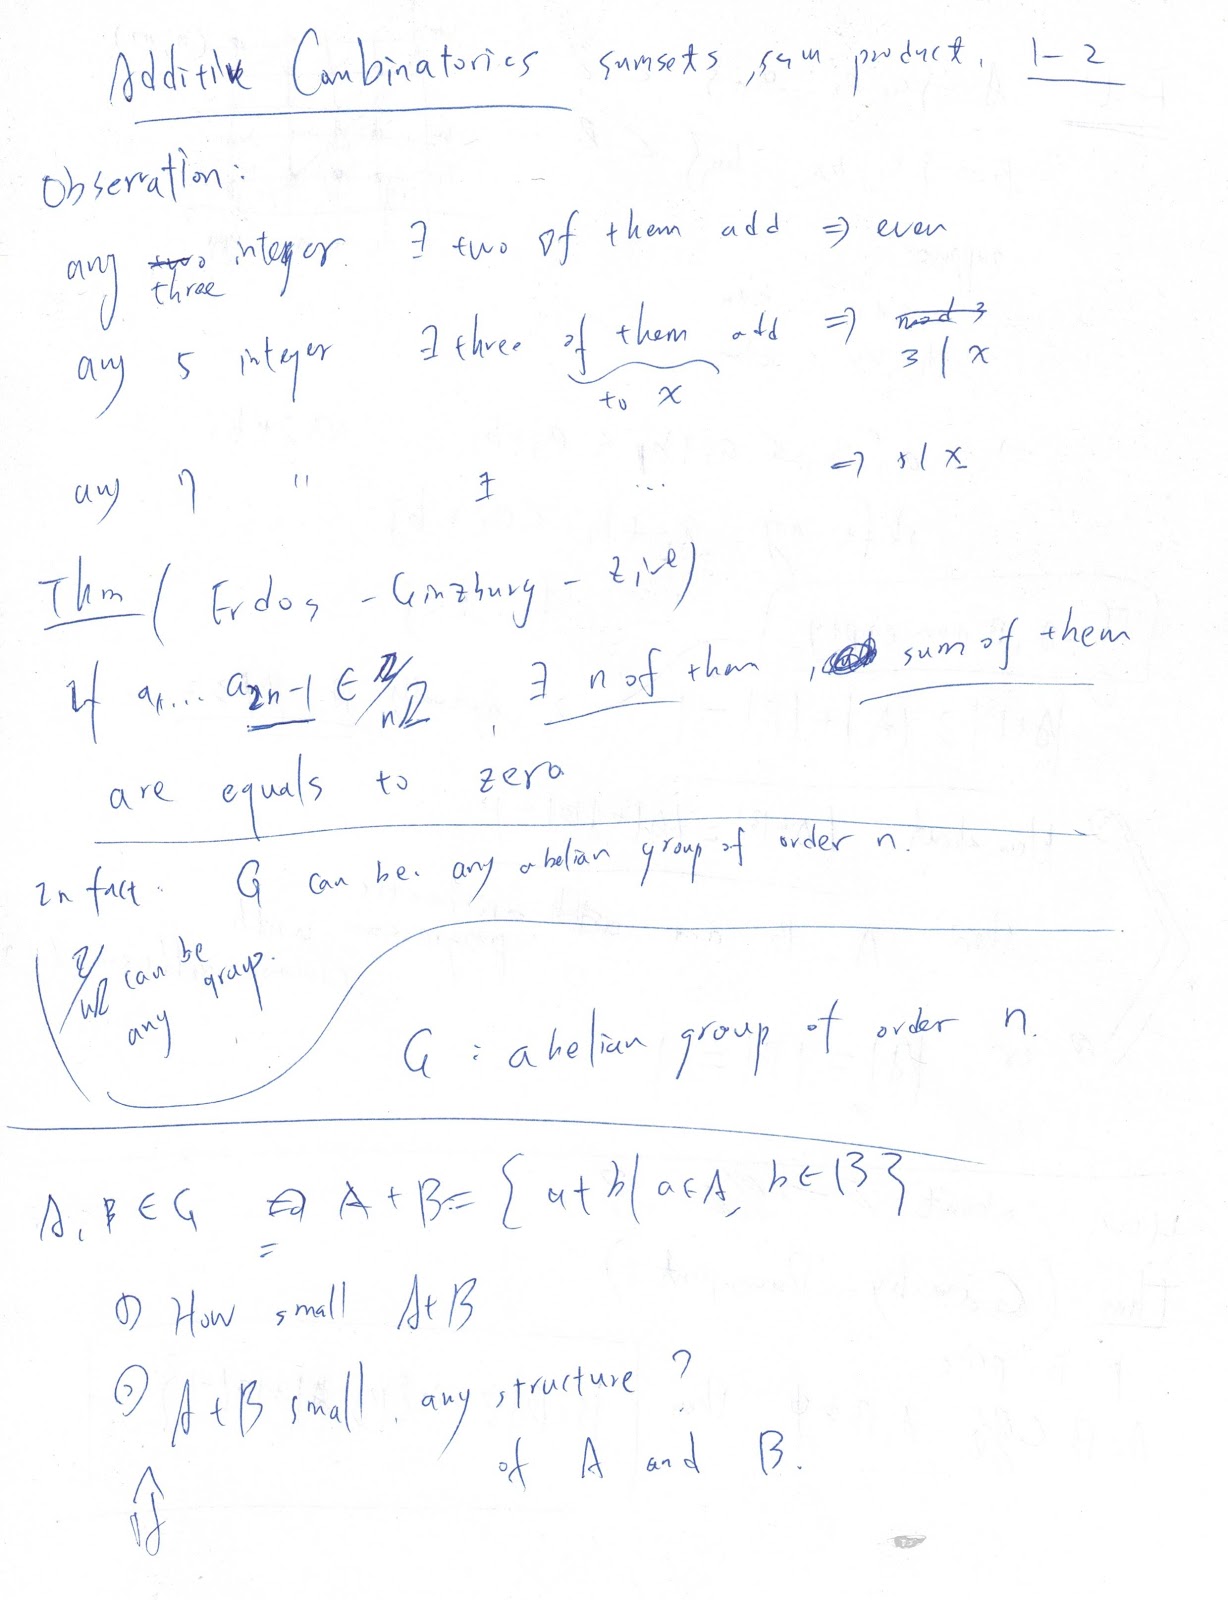 Additive Combinatorics sumsets, sum product. 1-2
Observation:
any three integer. ∃ two of them add ⇒ even
any 5 integer ∃ three of them add ⇒ 3 | x
to x
any 7 " ∃ ... ⇒ | x
Thm (Erdos - Ginzburg - Zive)
If a₁... a₂ₙ₋₁ ∈ ℤ/nℤ, ∃ n of them, sum of them
are equals to zero
In fact. G can be. any abelian group of order n.
ℤ/nℤ can be
any group.
G : abelian group of order n.
A, B ∈ G A + B = { a + b | a ∈ A, b ∈ B }
① How small A+B
② A+B small, any structure?
of A and B.
⇑
if